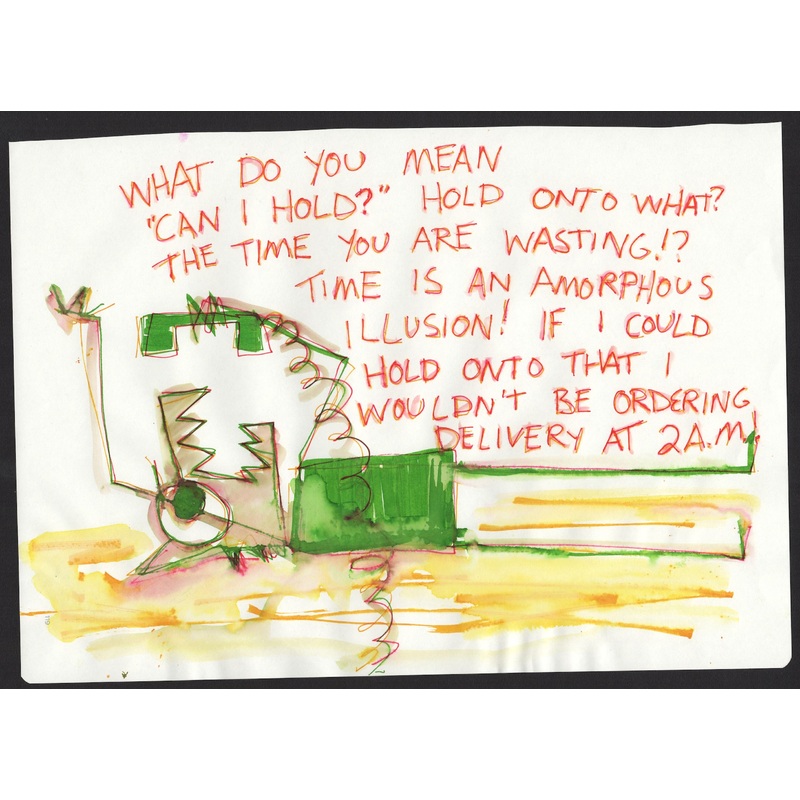 WHAT DO YOU MEAN
"CAN I HOLD?" HOLD ONTO WHAT?
THE TIME YOU ARE WASTING!?
TIME IS AN AMORPHOUS
ILLUSION! IF I COULD
HOLD ONTO THAT I
WOULDN'T BE ORDERING
DELIVERY AT 2A.M.